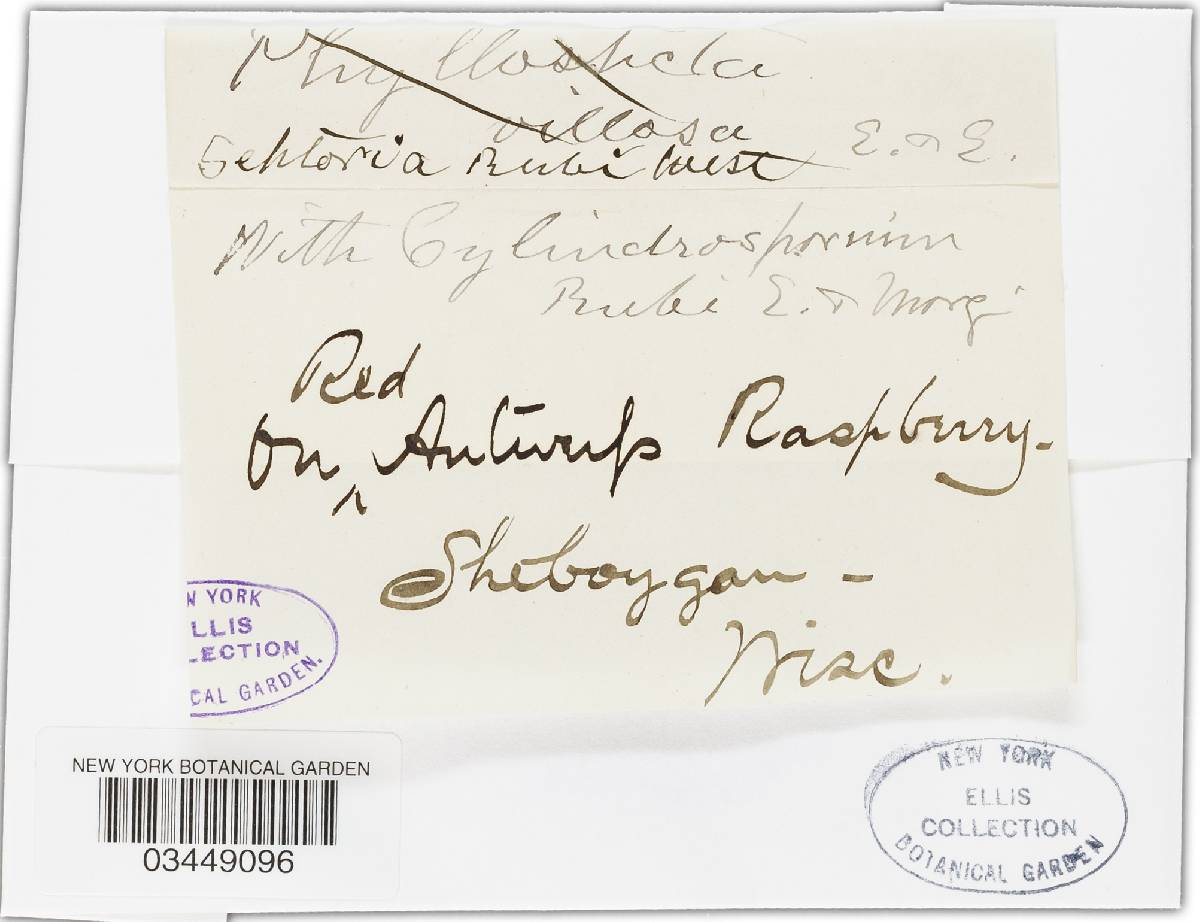 Phyllosticta
villosa E. & E.
Septoria Rubi West
With Cylindrosporium
Rubi E. & Morg
Red
On ^ Antwerp Raspberry-
Sheboygan -
Wisc.
W YORK
LLIS
LECTION
CAL GARDEN.
NEW YORK BOTANICAL GARDEN
03449096
NEW YORK
ELLIS
COLLECTION
BOTANICAL GARDEN